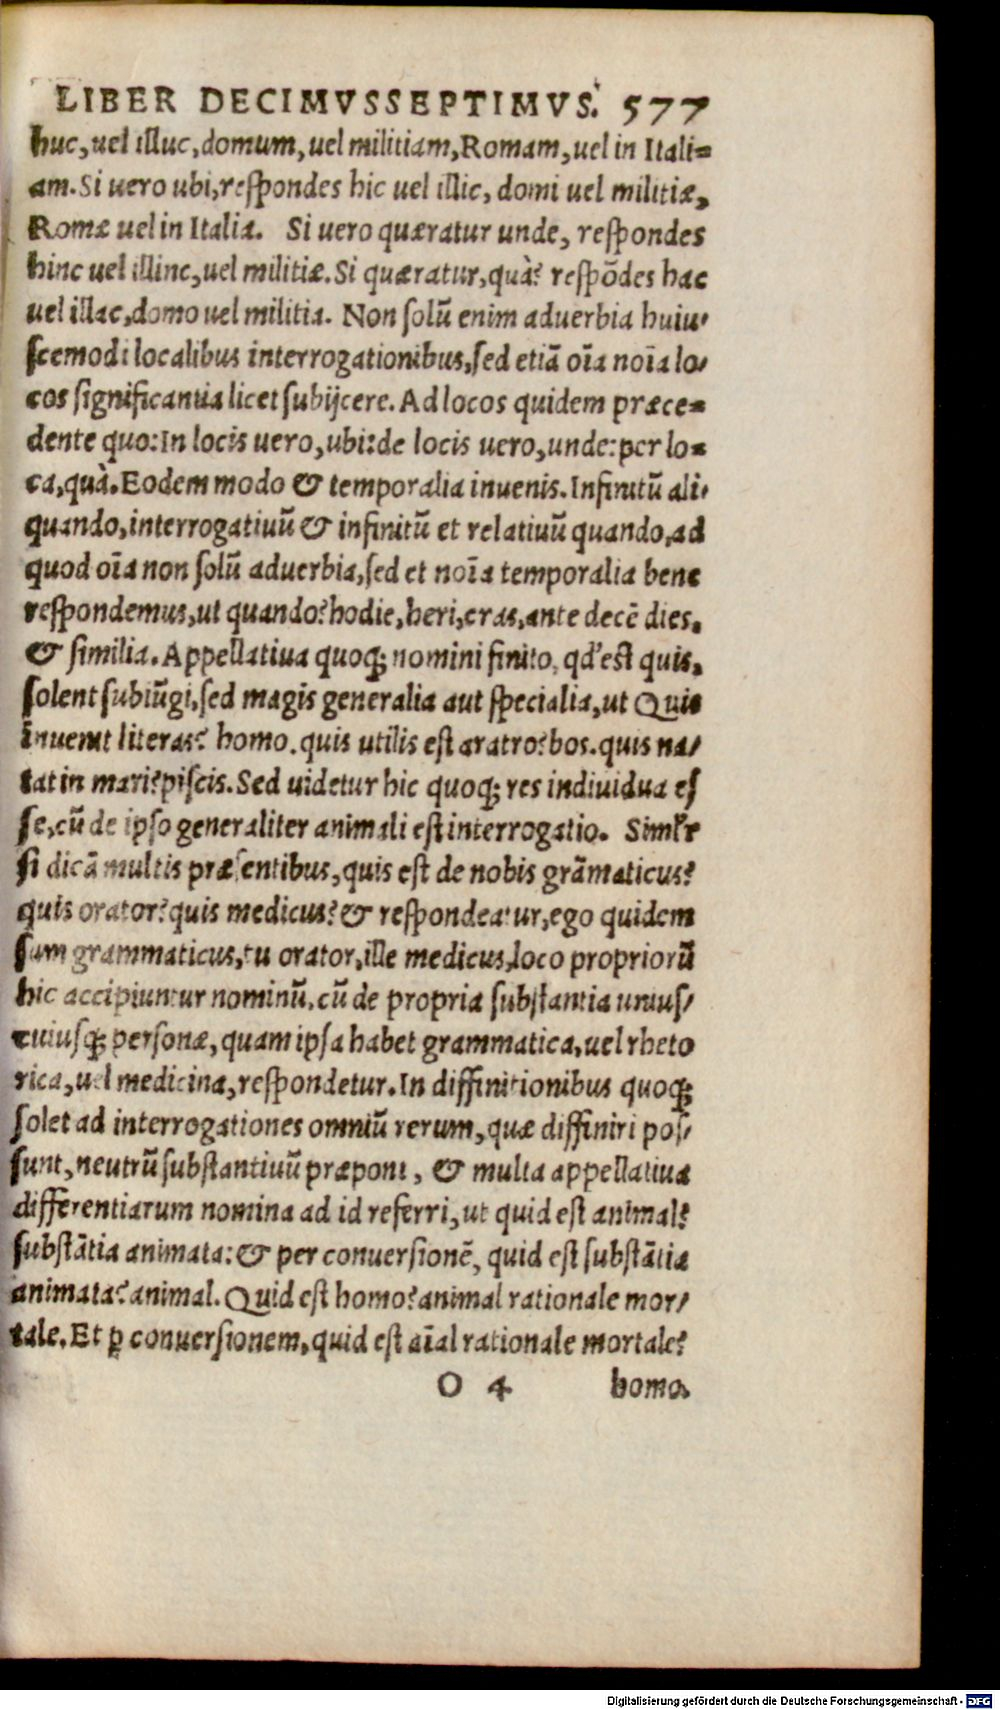 LIBER DECIMVSSEPTIMVS. 577
huc, uel illuc, domum, uel militiam, Romam, uel in Itali=
am. Si uero ubi, respondes hic uel illic, domi uel militiæ,
Romæ uel in Italia. Si uero quæratur unde, respondes
hinc uel illinc, uel militiæ. Si quæratur, quà? respōdes hac
uel illac, domo uel militia. Non solū enim aduerbia huiu-
scemodi localibus interrogationibus, sed etiā oīa noīa lo-
cos significantia licet subijcere. Ad locos quidem præce=
dente quo: In locis uero, ubi: de locis uero, unde: per lo=
ca, quà. Eodem modo & temporalia inuenis. Infinitū ali-
quando, interrogatiuū & infinitū et relatiuū quando, ad
quod oīa non solū aduerbia, sed et noīa temporalia bene
respondemus, ut quando? hodie, heri, cras, ante decē dies,
& similia. Appellatiua quoq; nomini finito, qd' est quis,
solent subiūgi, sed magis generalia aut specialia, ut Quis
inuenit literas? homo. quis utilis est aratro? bos. quis na-
tat in mari? piscis. Sed uidetur hic quoq; res indiuidua es
se, cū de ipso generaliter animali est interrogatio. Simłr
si dicā multis præsentibus, quis est de nobis grāmaticus?
quis orator? quis medicus? & respondeatur, ego quidem
sum grammaticus, tu orator, ille medicus, loco propriorū
hic accipiuntur nominū, cū de propria substantia unius-
cuiusq; personæ, quam ipsa habet grammatica, uel rheto
rica, uel medicina, respondetur. In diffinitionibus quoq;
solet ad interrogationes omniū rerum, quæ diffiniri pos-
sunt, neutrū substantiuū præponi, & multa appellatiua
differentiarum nomina ad id referri, ut quid est animal?
substātia animata: & per conuersionē, quid est substātia
animata? animal. Quid est homo? animal rationale mor-
tale. Et ꝑ conuersionem, quid est aīal rationale mortale?
O 4 homo.
Digitalisierung gefördert durch die Deutsche Forschungsgemeinschaft - DFG